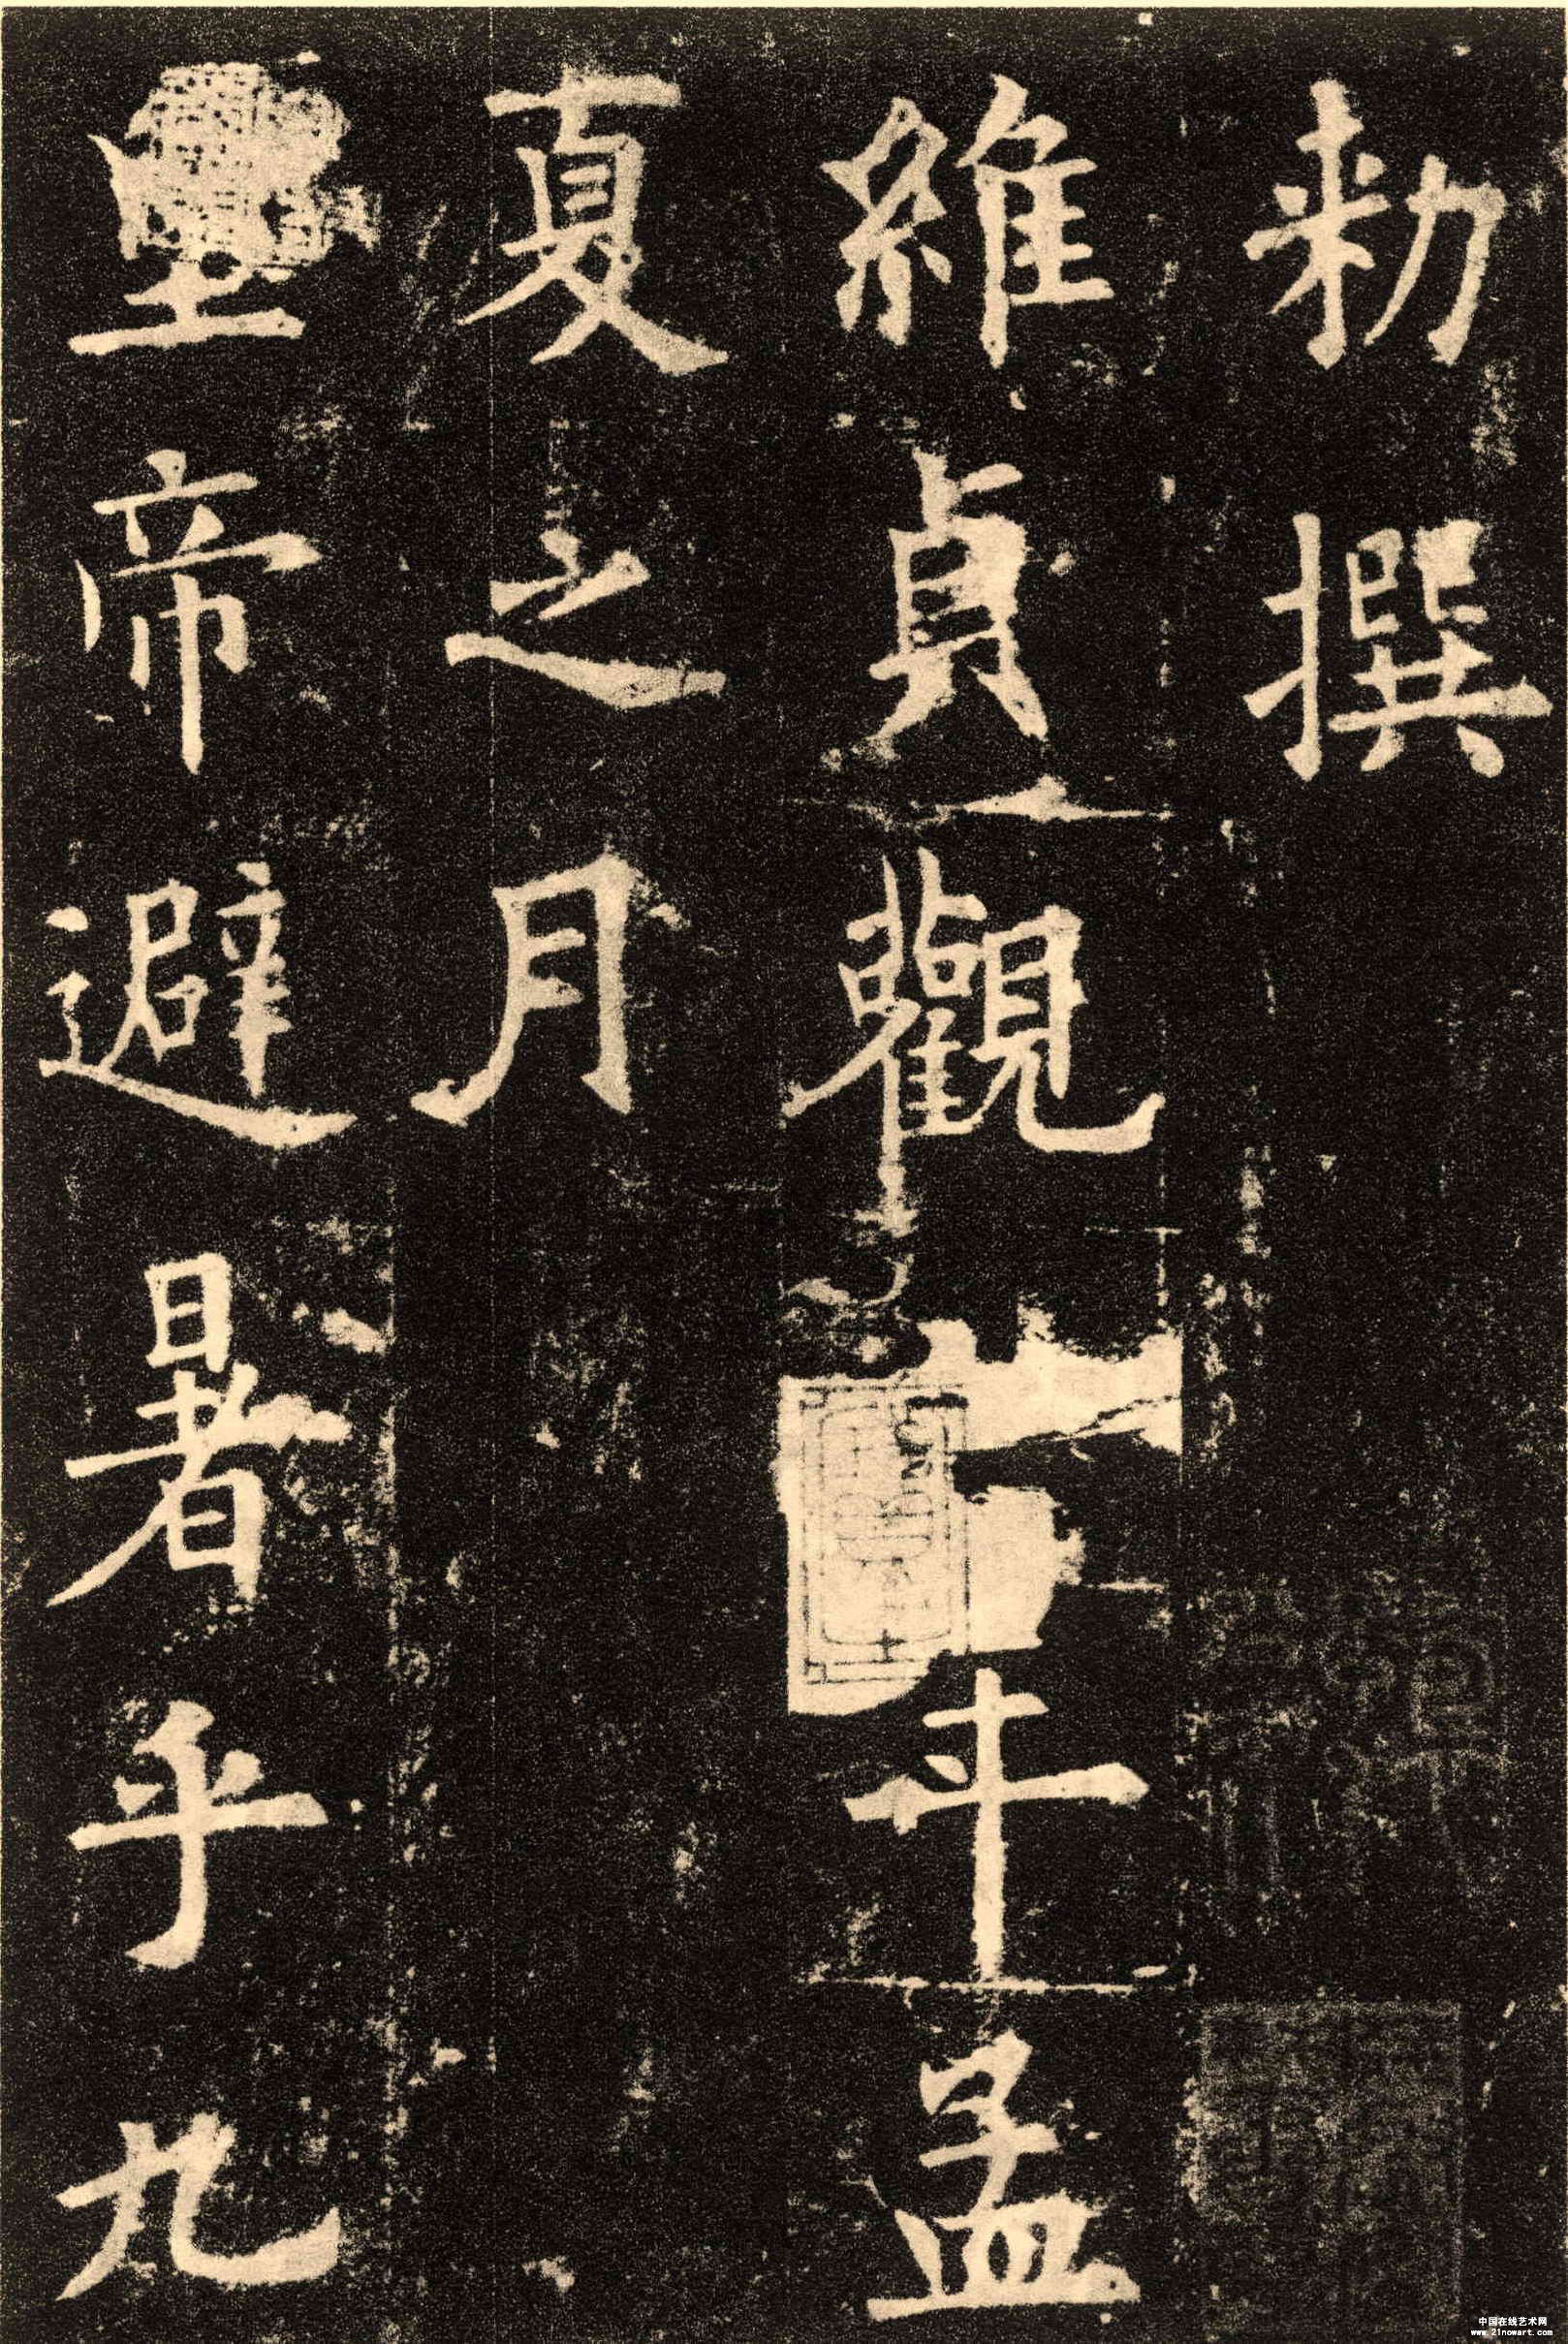 勑撰
維貞觀年孟
夏之月
皇帝避暑乎九
中国在线艺术网
www.21nowart.com